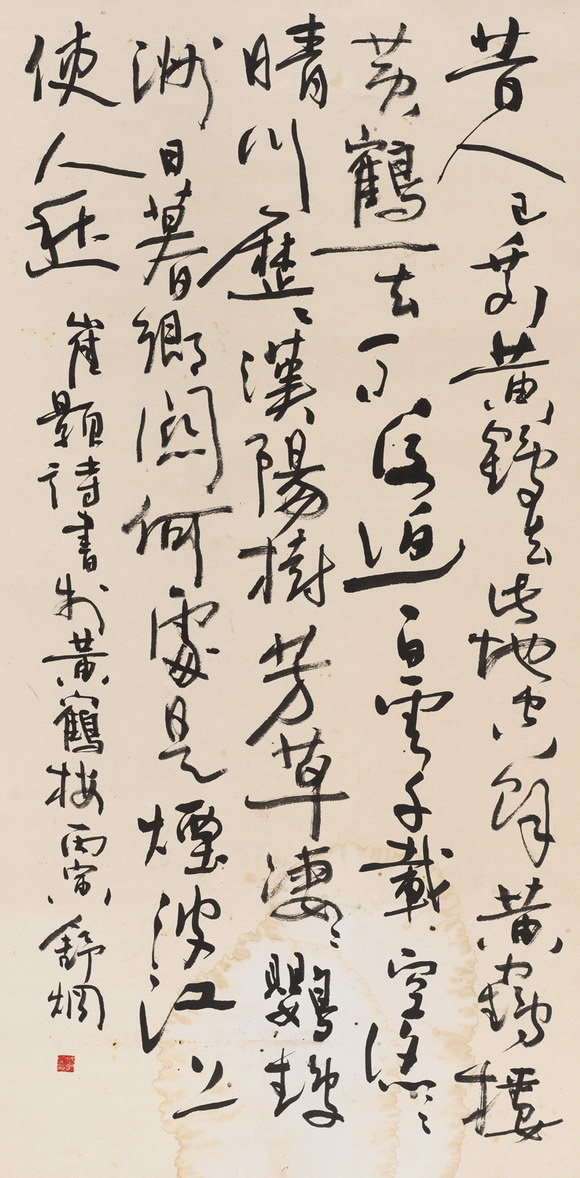 昔人已乘黄鶴去此地空餘黄鶴樓
黄鶴一去不復返白雲千載空悠〻
晴川歷〻漢陽樹芳草凄〻鸚鵡
洲日暮鄉關何處是煙波江上
使人愁
崔顥詩書於黄鶴楼丙寅舒炯